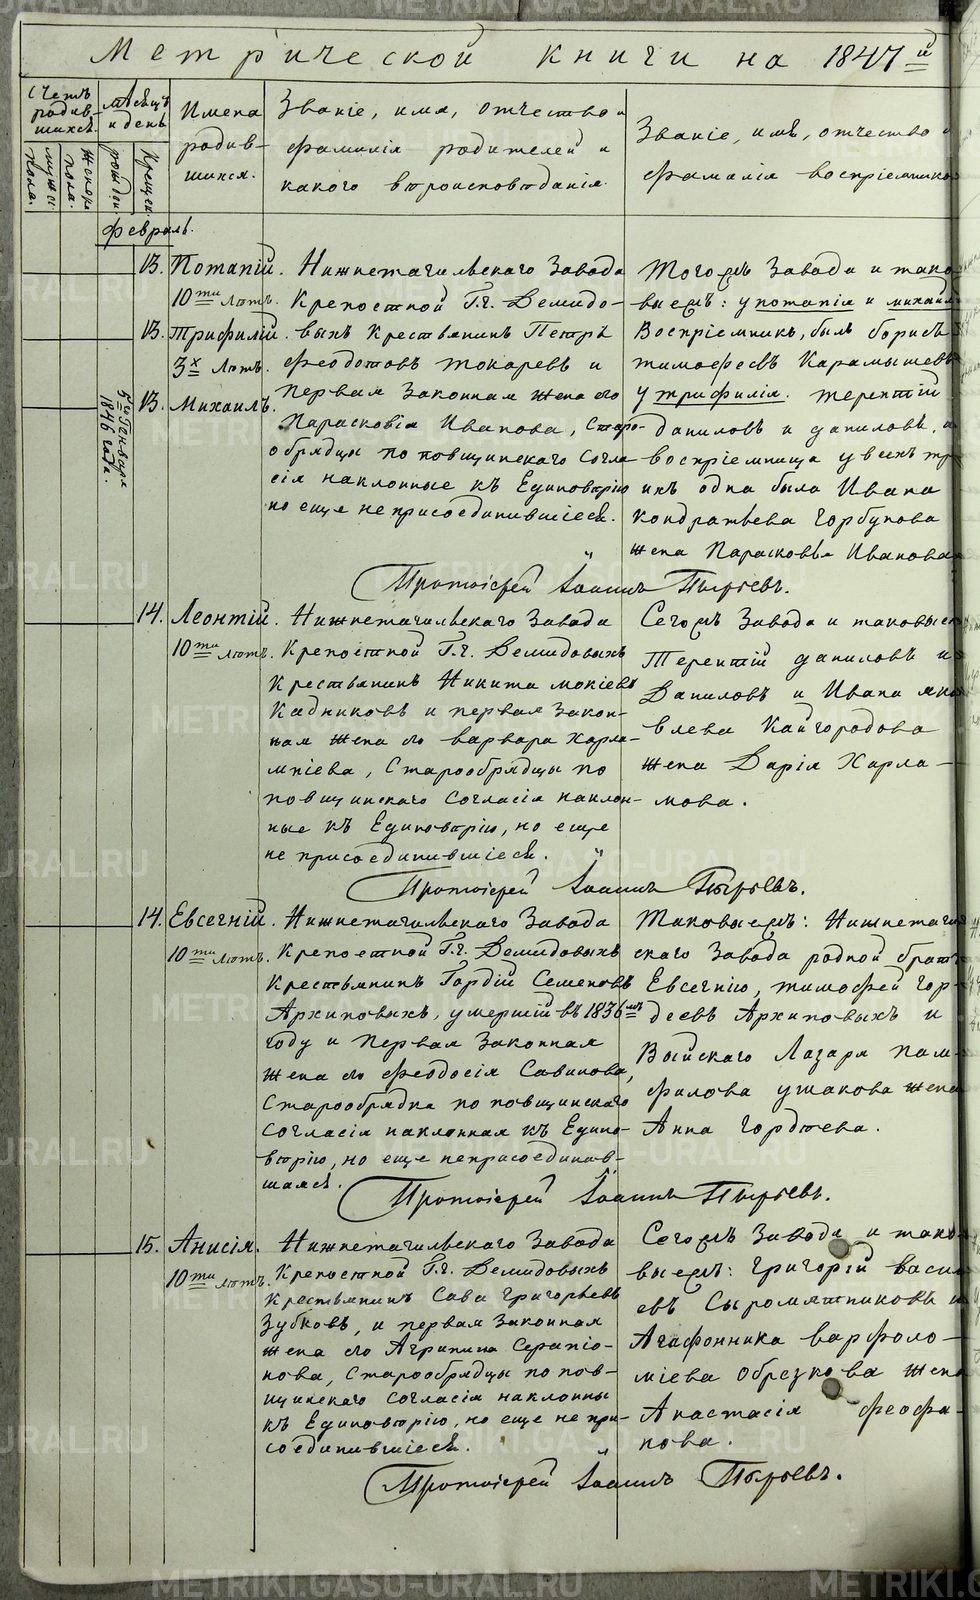 Метрической книги на 1847 й
Счетъ родив-шихсѧ.
мѣсѧцъ и день
Имена родив-шихсѧ.
Званіе, имѧ, отчество и
фамиліѧ родителей и
какого вѣроисповѣданіѧ.
Званіе, имѧ, отчество и
фамиліѧ воспріемнико
мужес. пола.
женск. пола.
рожден.
Крещен.
февраль.
13. Потапій.
10ти лѣтъ.
13. Трифилій.
3х лѣтъ.
13. Михаилъ.
5го Генваря 1846 года.
Нижнетагильскаго Завода
Крепостной Г.г. Демидо-
выхъ Крестьѧнинъ Петръ
Феодотовъ Токаревъ и
первая Законная жена его
Парасковіѧ Иванова, Старо-
обрѧдцы по повщинскаго Согла
сіѧ наклонные къ Единовѣрію
но еще неприсоединившіесѧ.
Тогожъ Завода и тако
выежъ: у потапіѧ и михаил
Воспріемникъ, былъ борисъ
тимофеевъ Карамышевъ
у трифиліѧ. терентій
даниловъ и даниловъ, а
воспріемница у всехъ тр
ихъ одна была Ивана
кондратьева Горбунова
жена Парасковьѧ Иванова
Протоіерей Іоаннъ Пырьевъ.
14. Леонтій.
10ти лѣтъ.
Нижнетагильскаго Завода
Крепостной Г.г. Демидовыхъ
Крестьѧнинъ Никита мокіевъ
Кадниковъ и первая Закон-
наѧ жена его варвара Харла-
мпіева, Старообрѧдцы по
повщинскаго Согласіѧ наклон-
ные къ Единовѣрію, но еще
не присоединившіесѧ.
Сегожъ Завода и таковыеж
Терентій даниловъ и
Даниловъ и Ивана ѧко
влева Кайгородова
жена Даріѧ Харла-
мова.
Протоіерей Іоаннъ Пырьевъ.
14. Евсегній.
10ти лѣтъ.
Нижнетагильскаго Завода
Крепостной Г.г. Демидовыхъ
Крестьѧнинъ Гордій Семеновъ
Архиповыхъ, умершій въ 1836мъ
году и Первая Законная
жена его Феодосіѧ Савинова,
Старообрѧдка по повщинскаго
Согласіѧ наклонная къ Едино-
вѣрію, но еще неприсоединив-
шаѧсѧ.
Таковыежъ: Нижнетагил
скаго Завода родной братъ
Евсегнію, тимофей Гор-
деевъ Архиповыхъ и
Выйскаго Лазаря пам-
филова ушакова жена
Анна Гордѣева.
Протоіерей Іоаннъ Пырьевъ.
15. Анисіѧ.
10ти лѣтъ.
Нижнетагильскаго Завода
Крепостной Г.г. Демидовыхъ
Крестьѧнинъ Сава Григорьевъ
Зубковъ, и первая Законная
жена его Агрипина Серапіо-
нова, Старообрѧдцы по пов-
щинскаго Согласіѧ наклонны
къ Единовѣрію, но еще не при-
соединившіесѧ.
Сегожъ Завода и тако
выежъ: Григорій васил
евъ Сыромѧтниковъ и
Агафонника варфоло-
міева обрезкова жена
Анастасіѧ феофа-
нова.
Протоіерей Іоаннъ Пырьевъ.
METRIKI.GASO-URAL.RU